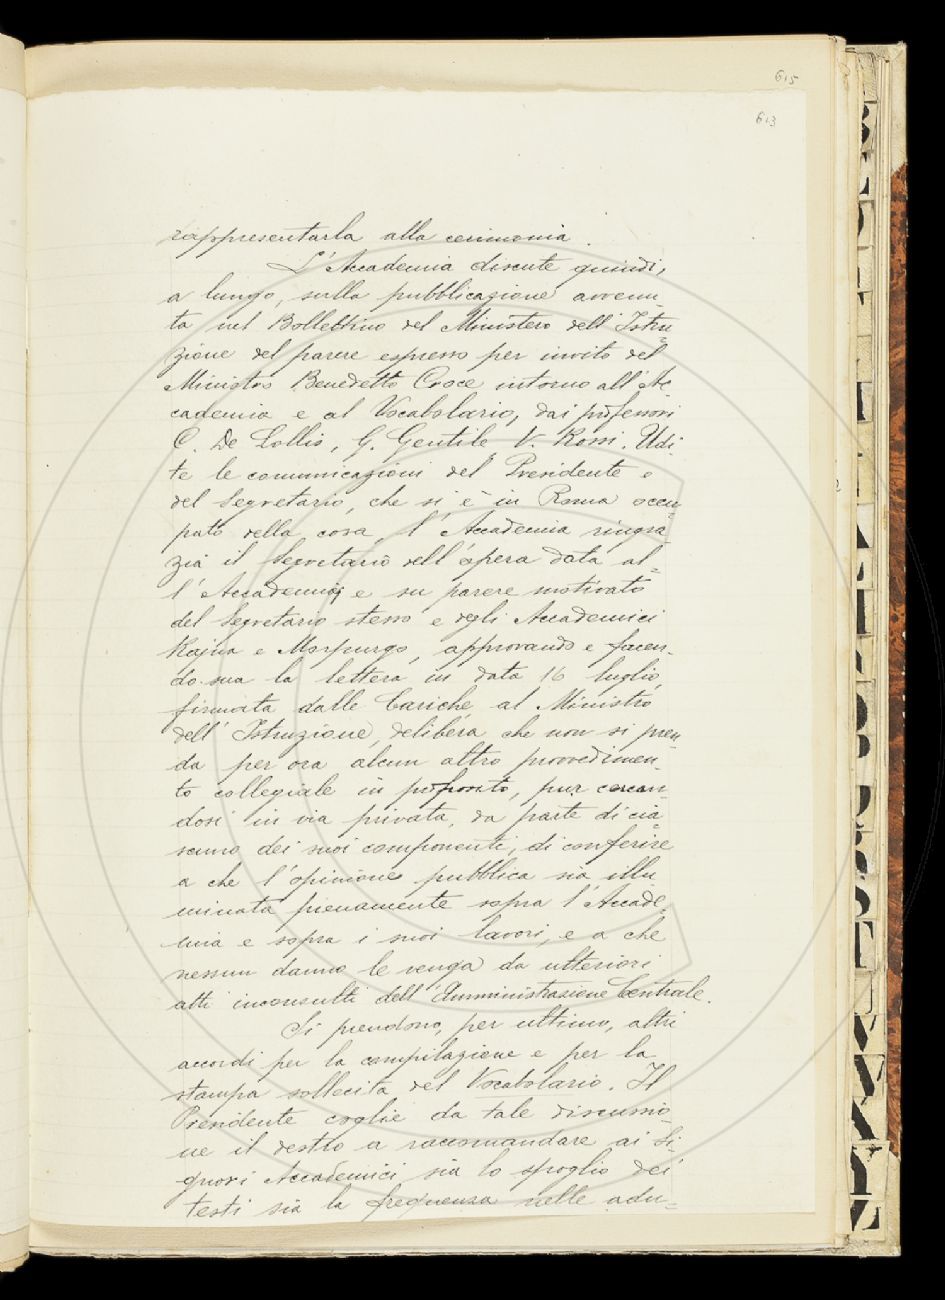 615
613
rappresentarla alla cerimonia.
L'Accademia discute quindi,
a lungo, sulla pubblicazione avvenu-
ta nel Bollettino del Ministero dell'Istru-
zione del parere espresso per invito del
Ministro Benedetto Croce intorno all'Ac-
cademia e al Vocabolario, dai professori
C. De Lollis, G. Gentile V. Rossi. Udi-
te le comunicazioni del Presidente e
del Segretario, che si è in Roma occu-
pato della cosa, l'Accademia ringra-
zia il Segretario dell'opera data al-
l'Accademia, e su parere motivato
del Segretario stesso e degli Accademici
Rajna e Morpurgo, approvando e facen-
do sua la lettera in data 16 luglio,
firmata dalle Cariche al Ministro
dell'Istruzione, delibera che non si pren-
da per ora alcun altro provvedimen-
to collegiale in proposito, pur cercan-
dosi in via privata, da parte di cia-
scuno dei suoi componenti, di conferire
a che l'opinione pubblica sia illu
minata pienamente sopra l'Accade-
mia e sopra i suoi lavori, e a che
nessun danno le venga da ulteriori
atti inconsulti dell'Amministrazione Centrale.
Si prendono, per ultimo, altri
accordi per la compilazione e per la
stampa sollecita del Vocabolario. Il
Presidente coglie da tale discussio-
ne il destro a raccomandare ai Si-
gnori Accademici sia lo spoglio dei
testi sia la frequenza nelle adu-